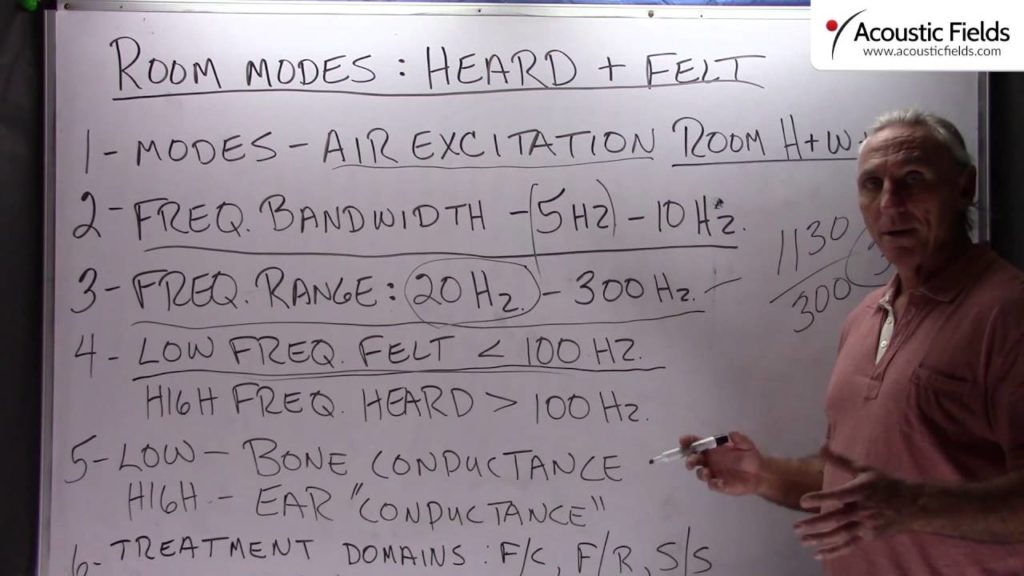 Acoustic Fields
www.acousticfields.com
ROOM MODES: HEARD + FELT
1- MODES - AIR EXCITATION ROOM H+W
2- FREQ. BANDWIDTH - (5 HZ) - 10 HZ.
3- FREQ. RANGE: 20 HZ. - 300 HZ. -
1130
300
4- LOW FREQ. FELT < 100 HZ.
HIGH FREQ. HEARD > 100 HZ.
5- LOW - BONE CONDUCTANCE
HIGH - EAR "CONDUCTANCE"
6- TREATMENT DOMAINS: F/C, F/R, S/S